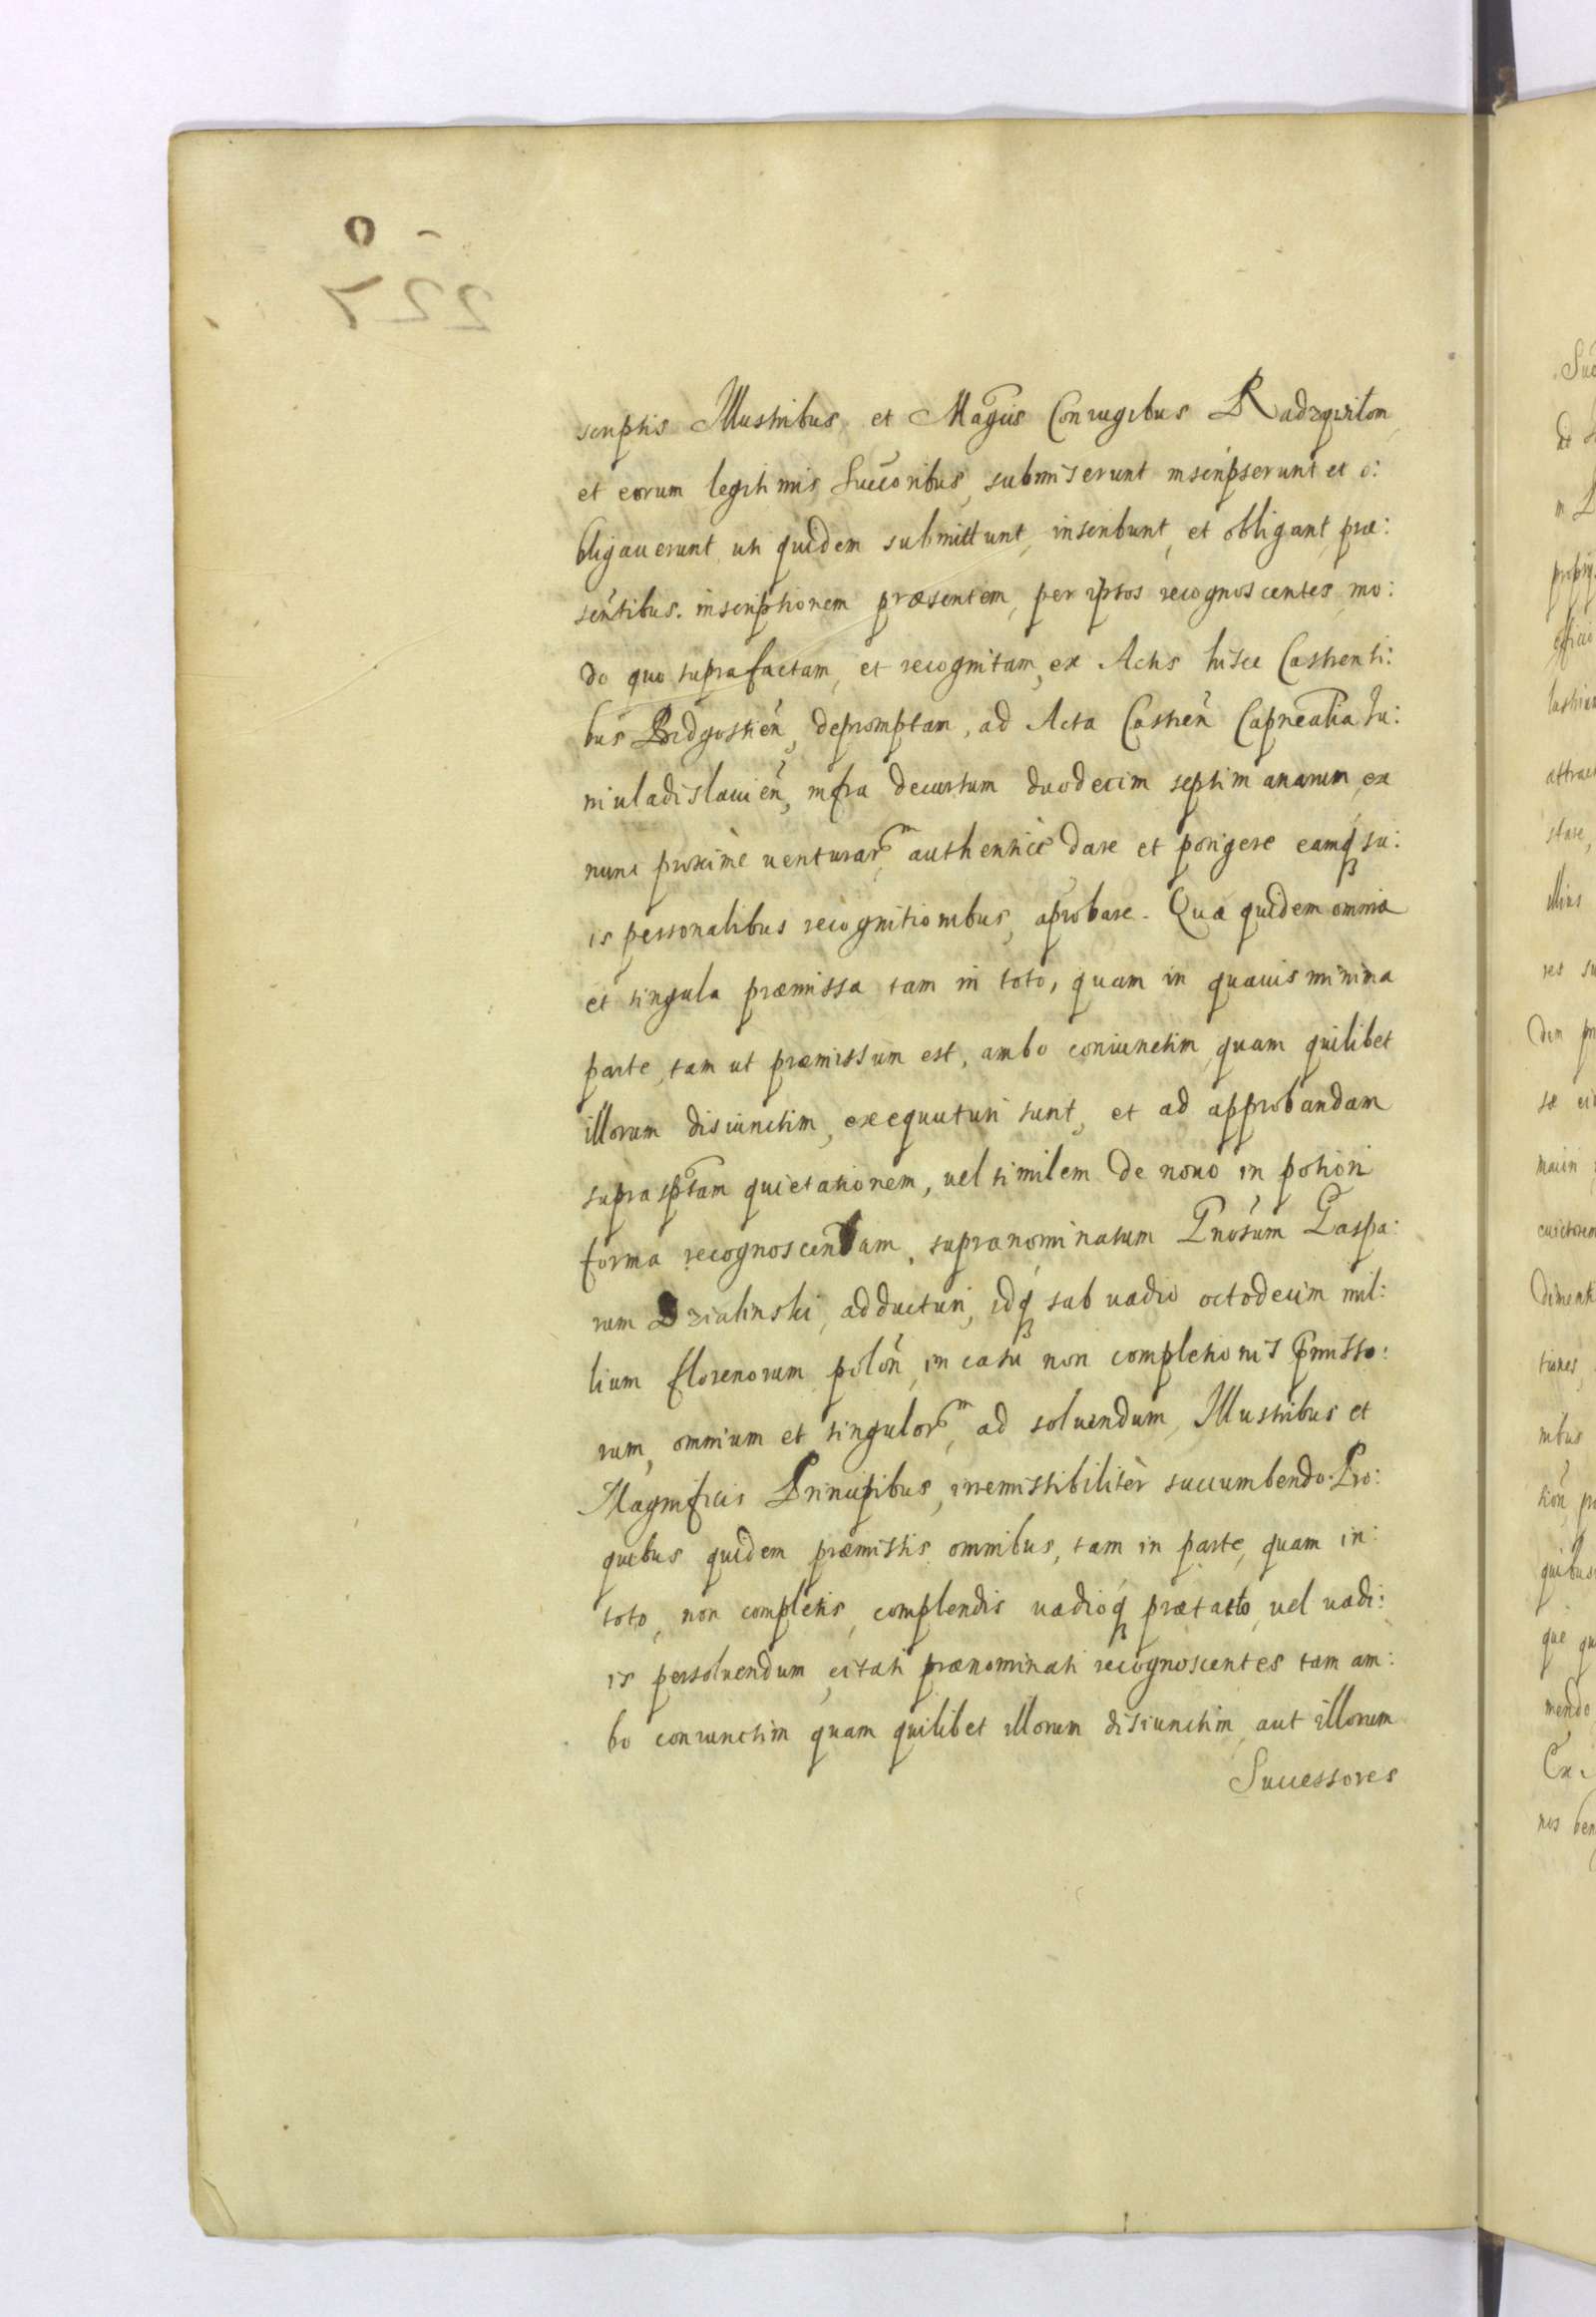 scriptis Illustribus, et Magcis Coniugibus Radzyvilom,
et eorum legitimis Succoribus, submiserunt inscripserunt et o:
bligaverunt, uti quidem submittunt, inscribunt, et obligant, præ:
sentibus. inscriptionem præsentem, per ipsos recognoscentes, mo:
do quo suprafactam, et recognitam, ex Actis hisce Castrensi:
bus Bidgostien̄, depromptam, ad Acta Castren̄ Capnealia Iu:
niuladislauien̄, infra decursum duodecim septimanarum, ex
nunc proximè venturarm, authenticè dare et porigere eamq́ su:
is personalibus recognitionibus, aprobare. Quæ quidem omnia
et singula præmissa tam in toto, quam in quavis minima
parte, tam ut præmissum est, ambo coniunctim, quam quilibet
illorum disiunctim, exequuturi sunt, et ad approbandam
suprasptam quietationem, vel similem de novo in potiori
forma recognoscendam, supranominatum Gnosum Gaspa:
rum Dzialinski, adducturi, idq́ sub vadio octodecim mil:
lium florenorum polon̄, in casu non completionis Pmisso:
rum, omnium et singulorm, ad solvendum, Illustribus et
Magnificis Principibus, irremissibilitèr succumbendo. Pro:
quibus quidem præmissis omnibus, tam in parte, quam in:
toto, non completis, complendis vadioq́ prætacto, vel vadi:
is persolvendum, citati prænominati recognoscentes tam am:
bo coniunctim quam quilibet illorum disiunctim, aut illorum
Successores